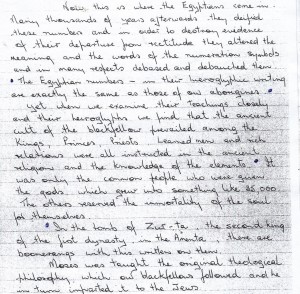 Now, this is where the Egyptians come in.
Many thousands of years afterwards they defied
these numbers and in order to destroy evidence
of their departure from rectitude they altered the
meaning and the words of the numeration symbols
and in many respects debased and debauched them.
• The Egyptian numbers - in their heiroglyphic writing
are exactly the same as those of our aborigines.
Yet when we examine their Teachings closely
and their heiroglyphs we find that the ancient
cult of the blackfellow prevailed among the
Kings, Princes, Priests Learned men and rich
relations were all instructed in the ancient
religion and the knowledge of the elements. • It
was only the common people who were given
the gods which grew into something like 25,000.
The others reserved the immortality of the soul
for themselves.
• In the tomb of the second King
of the first dynasty, in the Amenta there are
boomerangs with this written on them.
Moses was taught the original theological
philosophy which our blackfellows followed and he
in turn imparted it to the Jews.